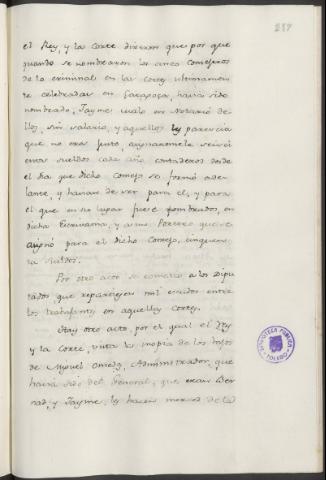 257
el Rey, y la Corte dixeron que por que
quando se nombraron los cinco Consejeros
de la criminal en las Cortes ultimamen
te celebradas en Zaragoza, havia sido
nombrado, Jayme malo en Notario de
llos, sin salario, y aquellos les parecia
que no era justo,
entos sueldos cada año contaderos desde
el dia que dicho Consejo se formó ade-
lante, y havian de ser para el, y para
el que en su lugar fuese nombrado, en
dicha Escrivania, y a un Portero que se
añadió para el dicho Consejo, cinquen
ta sueldos.
Por otro acto se cometio a los Dipu
tados que repartiesen mil escudos entre
los trabajantes en aquellas Cortes.
Hay otro acto, por el qual el Rey
y la Corte, vista la inopia de los hijos
de Miguel Omedes, Administrador, que
havia sido del General, que eran Ber
nad, y Jayme, les hacen merced de la
BIBLIOTECA PUBLICA
TOLEDO